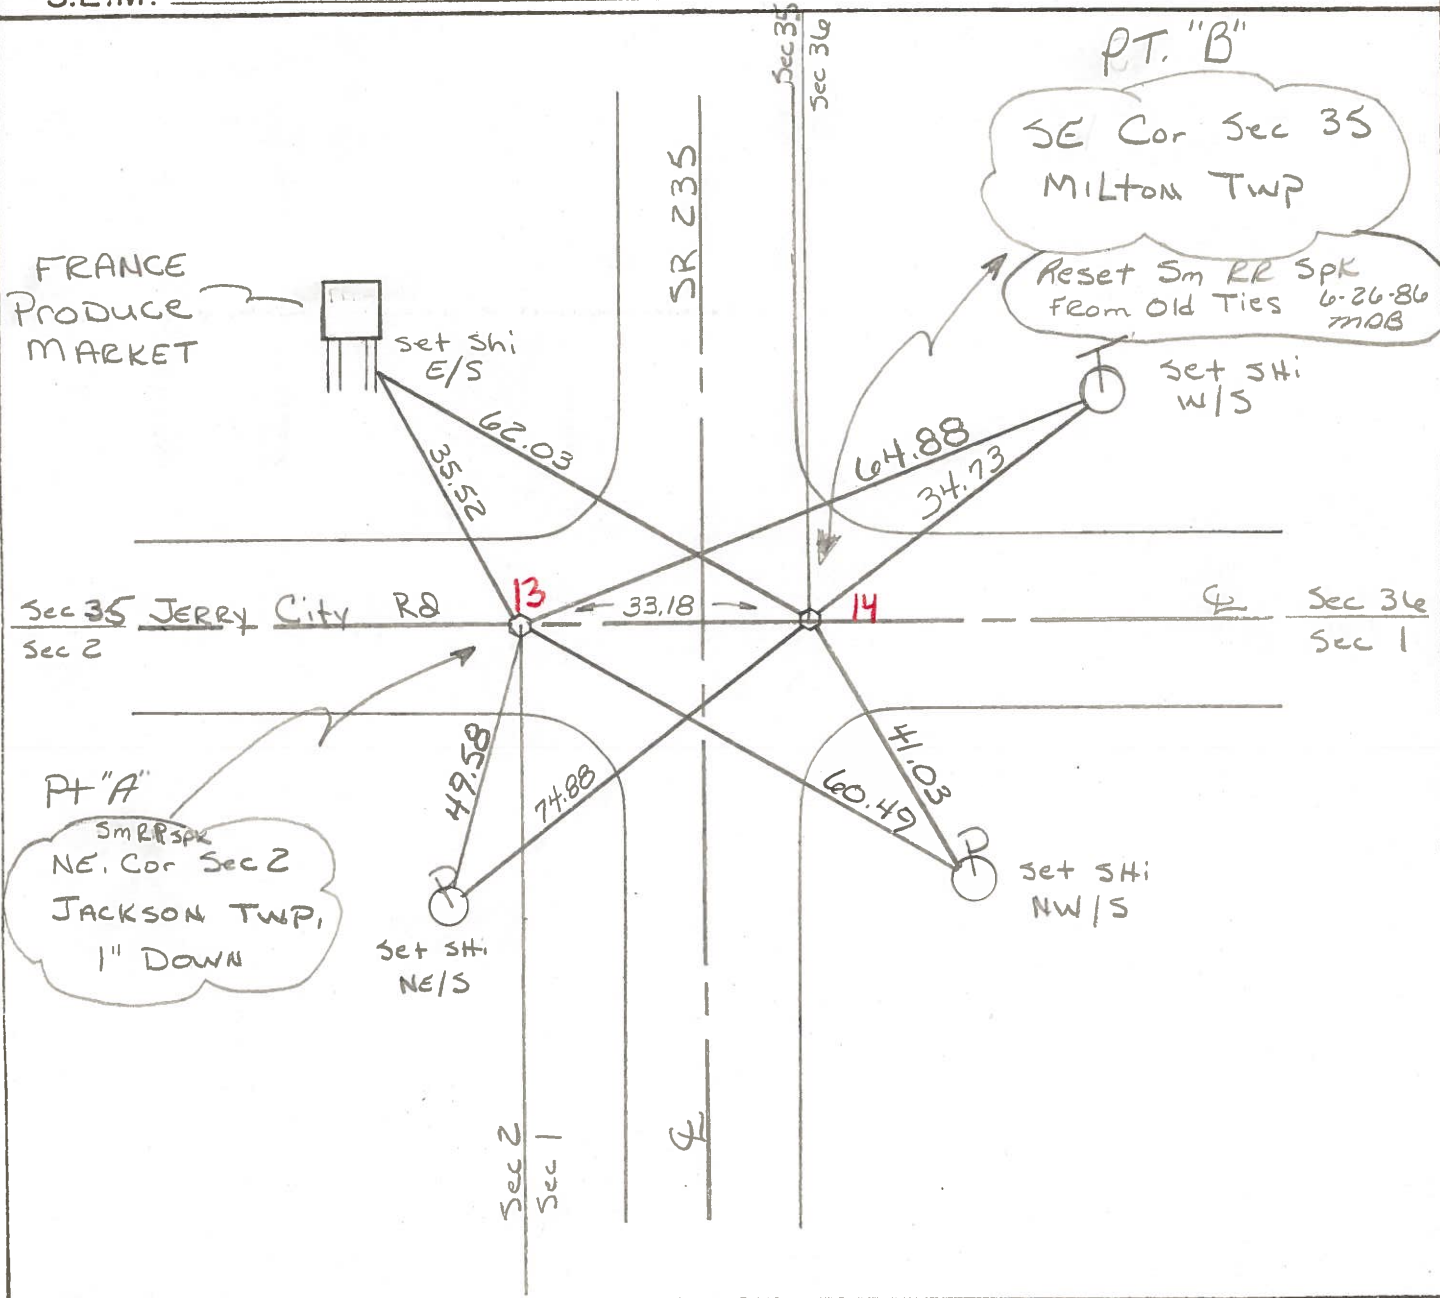 Sec 35
Sec 36
PT. "B"
SE Cor Sec 35
MILTON TWP
Reset Sm RR Spk
From Old Ties 6-26-86
MDB
SR 235
FRANCE
PRODUCE
MARKET
set shi
E/S
set SHi
W/S
62.03
35.52
64.88
34.73
13
33.18
14
Sec 35 JERRY City Rd
Sec 2
CL
Sec 36
Sec 1
49.58
74.88
60.49
41.03
Pt "A"
Sm RR spk
NE. Cor Sec 2
JACKSON TWP,
1" DOWN
P
set SHi
NE/S
P
set SHi
NW/S
Sec 2
Sec 1
CL